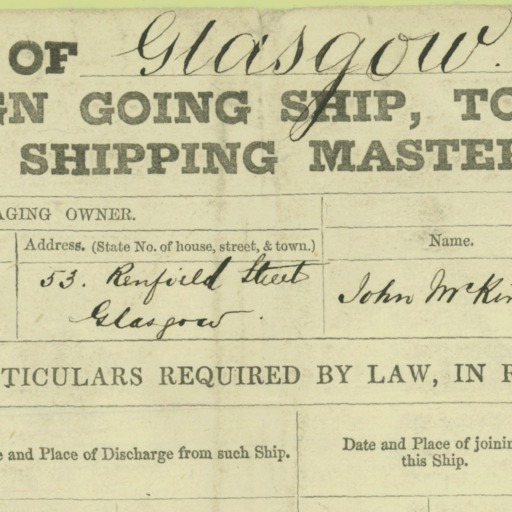 OF Glasgow.
GN GOING SHIP, TO
SHIPPING MASTER
AGING OWNER.
Address. (State No. of house, street, & town.) Name.
53. Renfield Street
Glasgow. John McKin
TICULARS REQUIRED BY LAW, IN R
e and Place of Discharge from such Ship. Date and Place of joinin
this Ship.